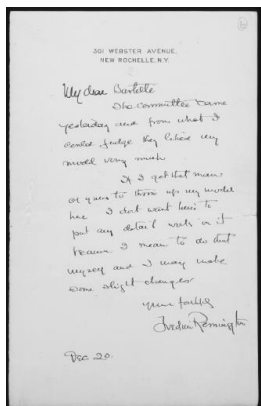 301 WEBSTER AVENUE,
NEW ROCHELLE, N.Y.
My dear Bartlett
The committee came
yesterday and from what I
could judge they liked my
model very much.
If I get that man
of yours to them up my model
here I dont want him to
put any detail work on it
because I mean to do that
myself and I may make
some slight changes
Yours faithfully
Frederic Remington
Dec 20.